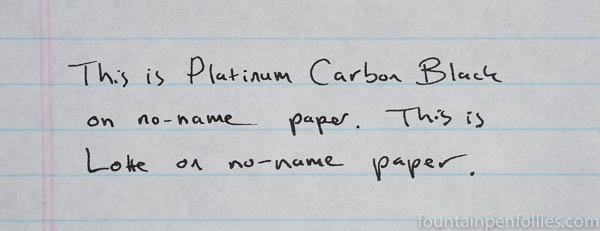 This is Platinum Carbon Black
on no-name paper. This is
Lotte on no-name paper.
fountainpenfollies.com